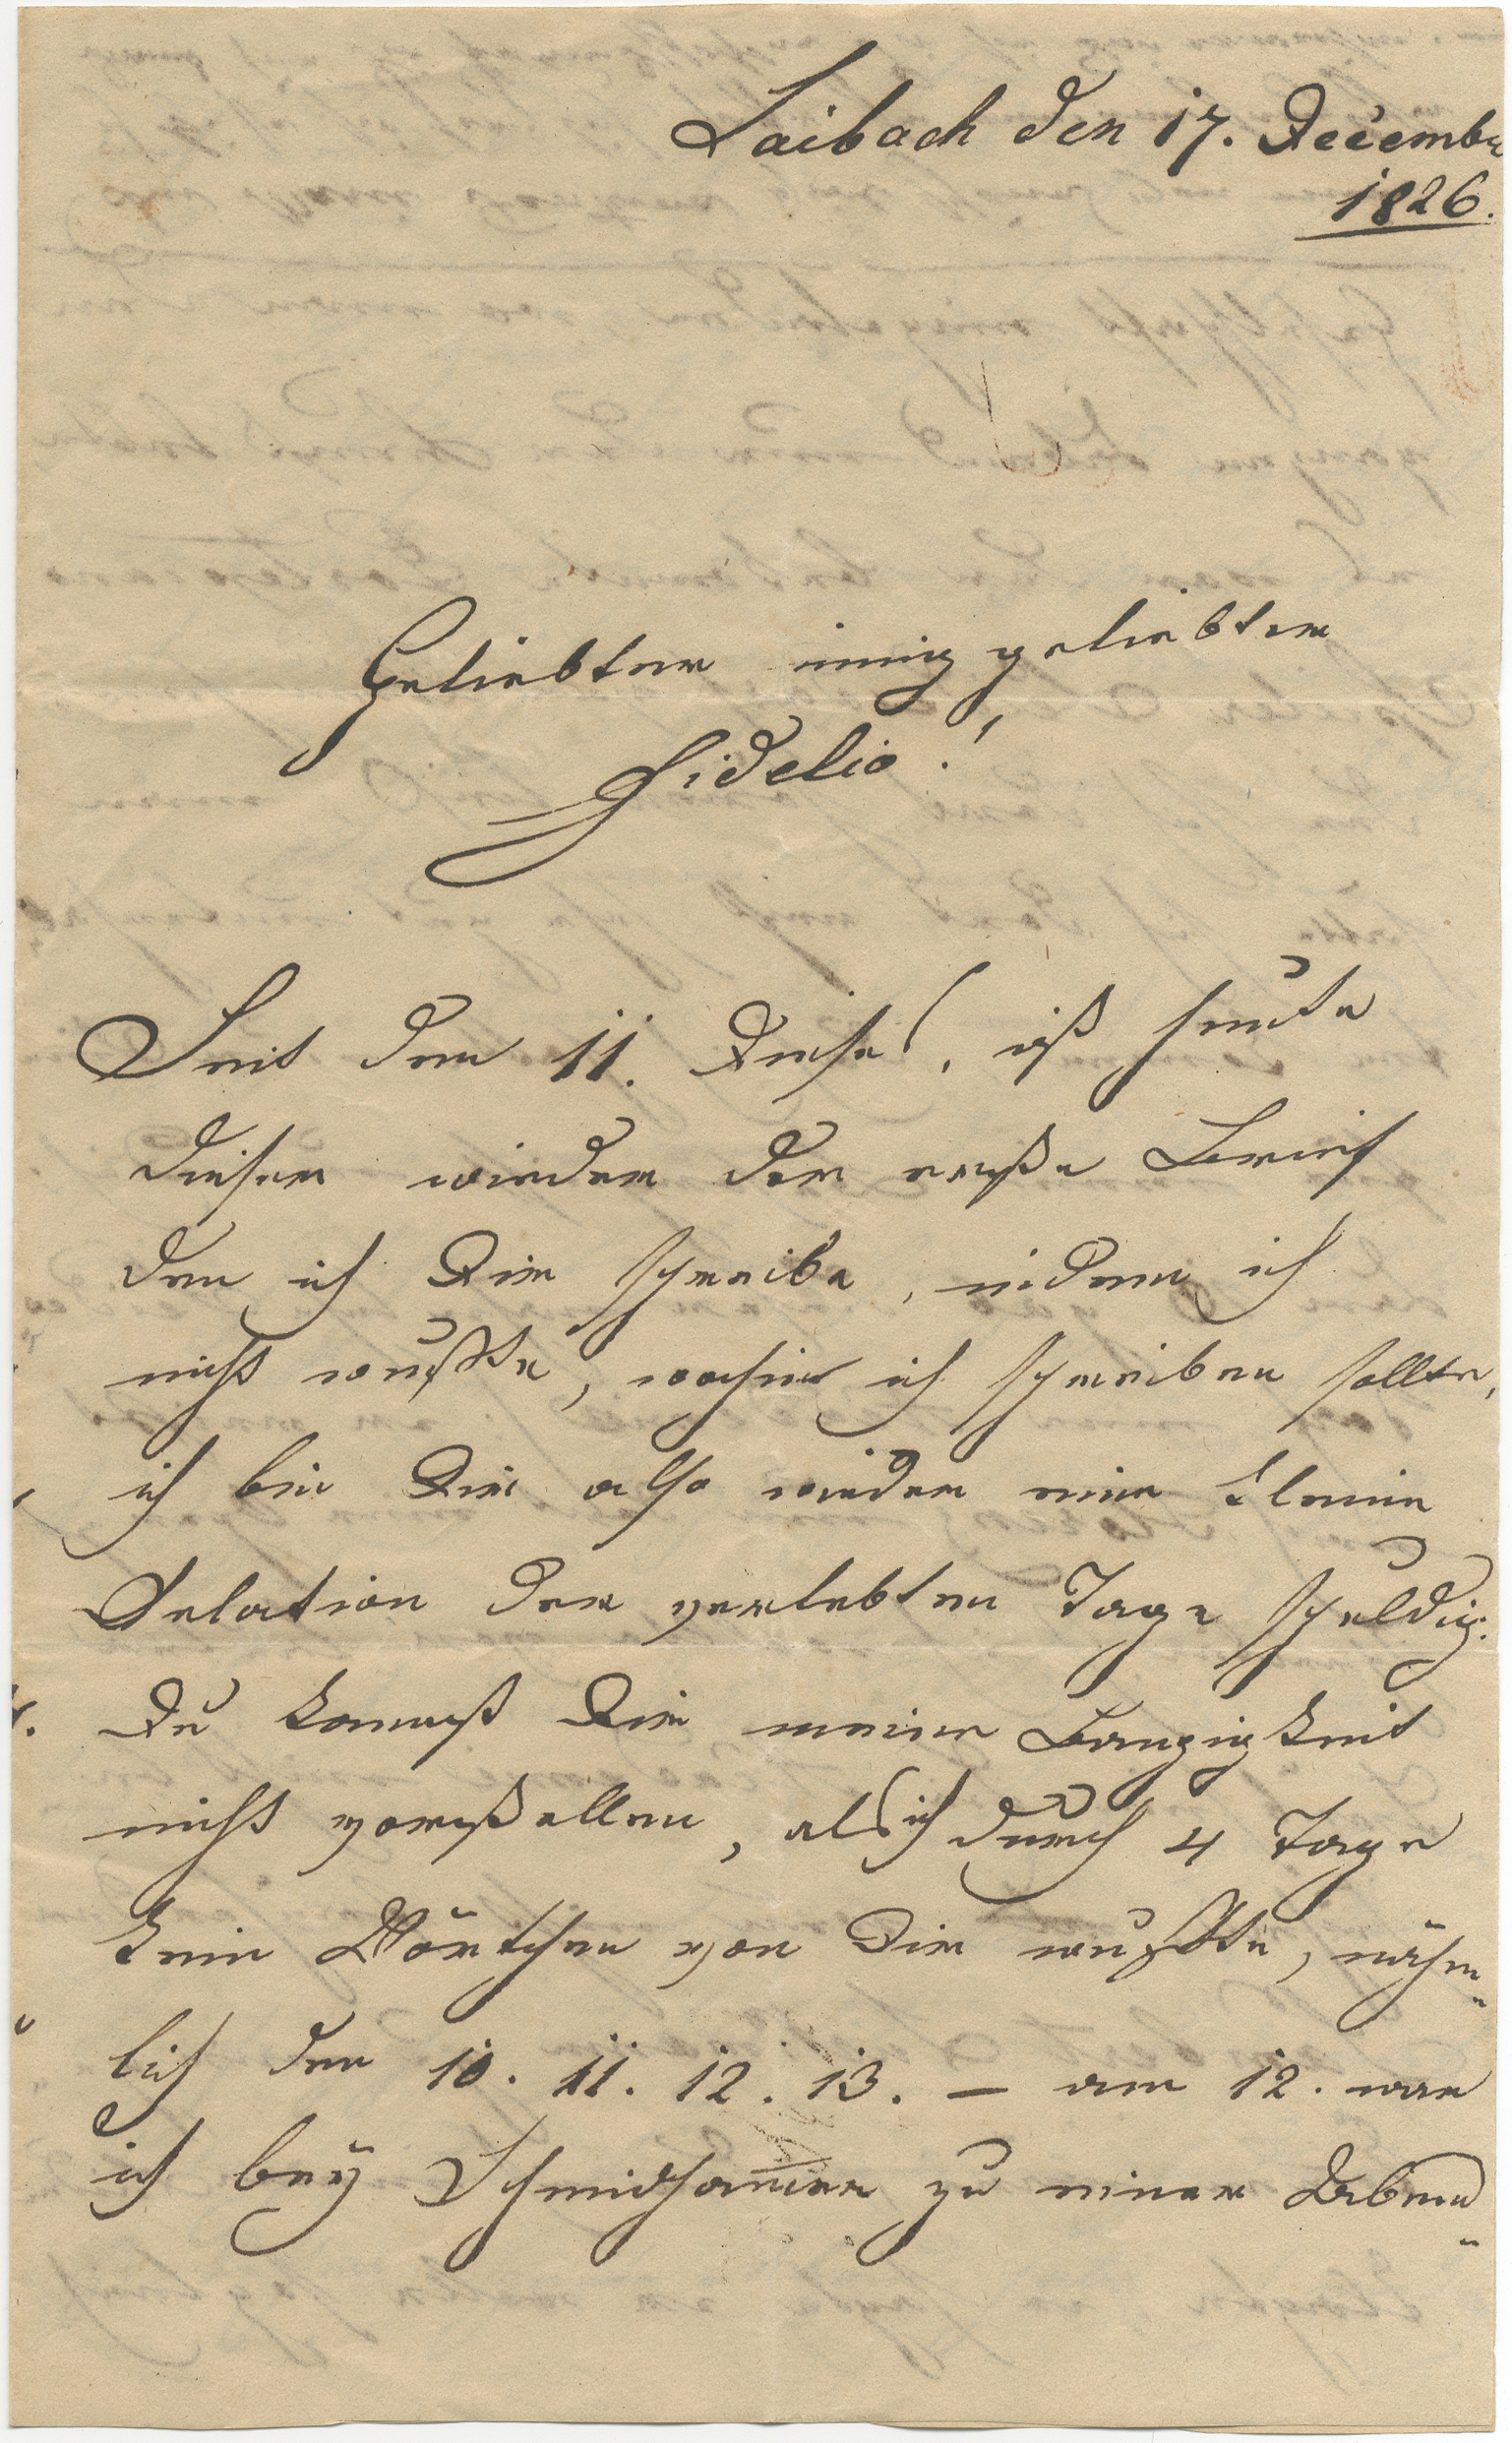 Laibach den 17. Decemb
1826.
Geliebter innig geliebter
Fidelio!
Seit dem 11. Dieses, ist heute
dieser wieder der erste Brief
den ich Dir schreibe, indem ich
nicht wußte, wohin ich schreiben sollte,
ich bin Dir also wieder eine kleine
Relation der verlebten Tage schuldig.
Du kannst Dir meine Bangigkeit
nicht vorstellen, als ich durch 4 Tage
kein Wörtchen von Dir wußte, nähm„
lich den 10. 11. 12. 13. – am 12. war
ich bey zu einer Abend„